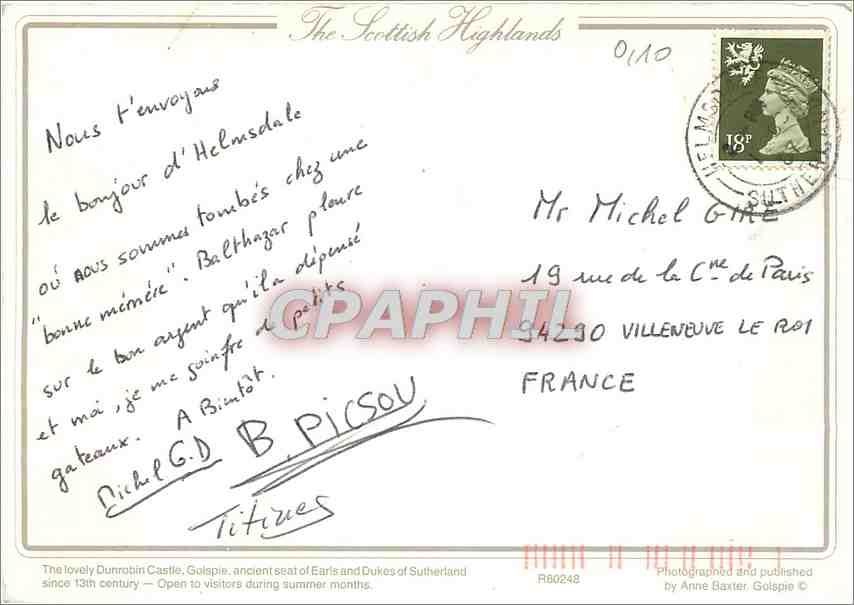 The Scottish Highlands
0,10
18P
HELMS
SUTHERLAND
Nous t'envoyons
le bonjour d'Helmsdale
où nous sommes tombés chez une
"bonne mémère". Balthazar pleure
sur le bon argent qu'il a dépensé
et moi, je me goinfre de petits
gateaux. A Bientôt.
Michel G.D B. PICSOU
Titines
Mr Michel GIRE
19 rue de la Cne de Paris
94290 VILLENEUVE LE ROI
FRANCE
CPAPHIL
The lovely Dunrobin Castle, Golspie, ancient seat of Earls and Dukes of Sutherland
since 13th century — Open to visitors during summer months.
R60248
Photographed and published
by Anne Baxter. Golspie ©